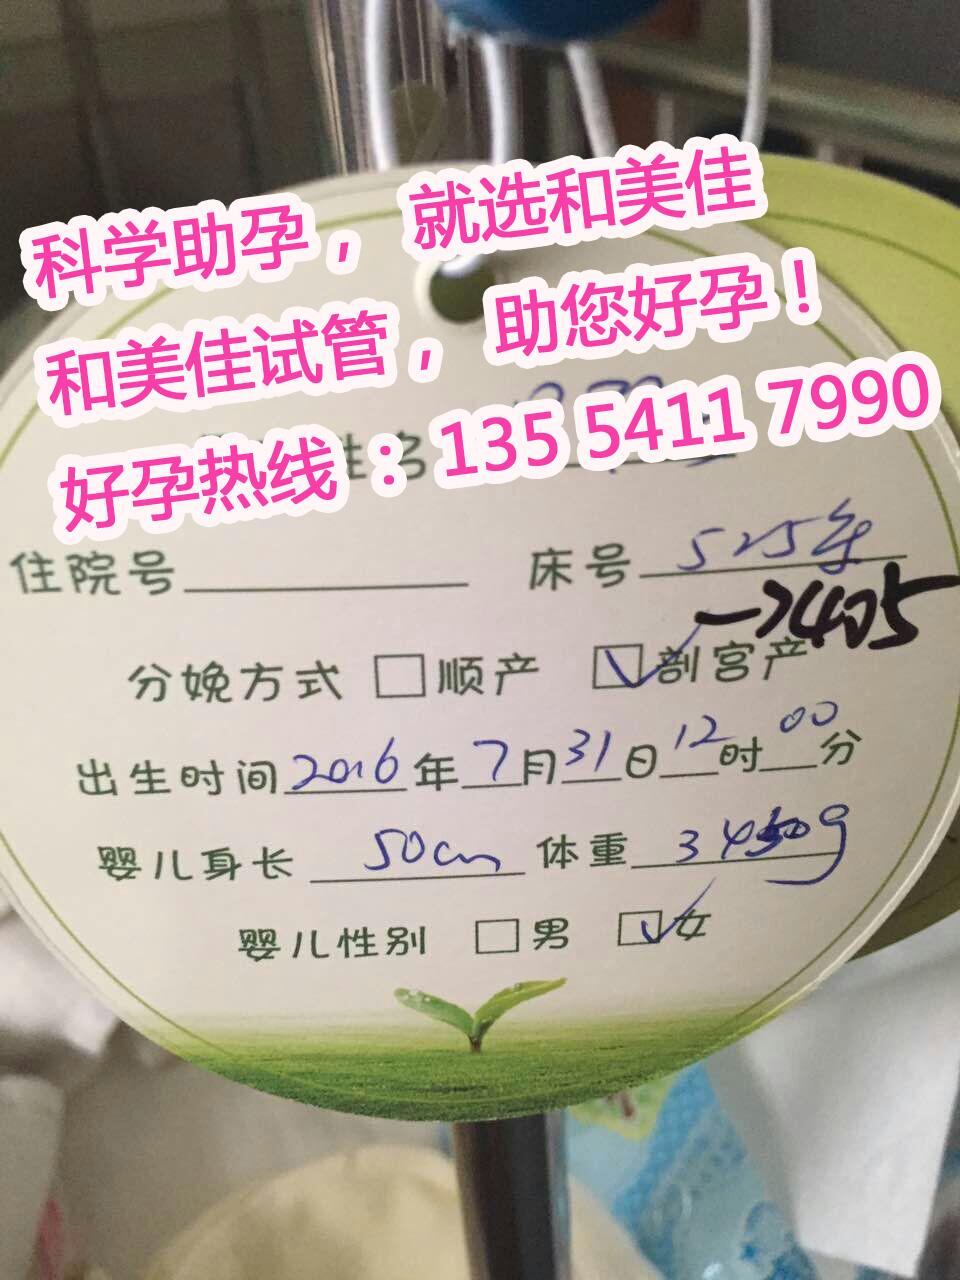 科学助孕， 就选和美佳
和美佳试管， 助您好孕！
好孕热线：135 5411 7990
姓名
住院号 床号 525
→2405
分娩方式 顺产 剖宫产
出生时间 2016 年 7 月 31 日 12 时 00 分
婴儿身长 50cm 体重 3450g
婴儿性别 男 女